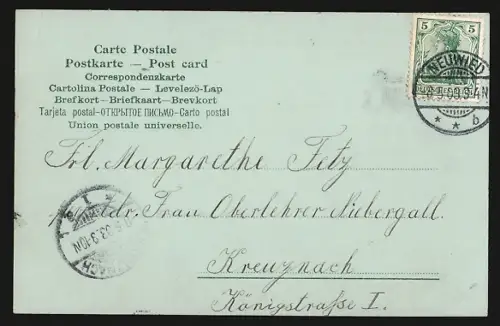 Carte Postale
Postkarte — Post card
Correspondenzkarte
Cartolina Postale – Levelező-Lap
Brefkort – Briefkaart – Brevkort
Tarjeta postal – ОТКРЫТОЕ ПИСЬМО – Carto postal
Union postale universelle.
5 5
NEUWIED
* * b
Frl. Margarethe Fetz
Adr. Frau Oberlehrer Niebergall.
Kreuznach
Königstraße I.